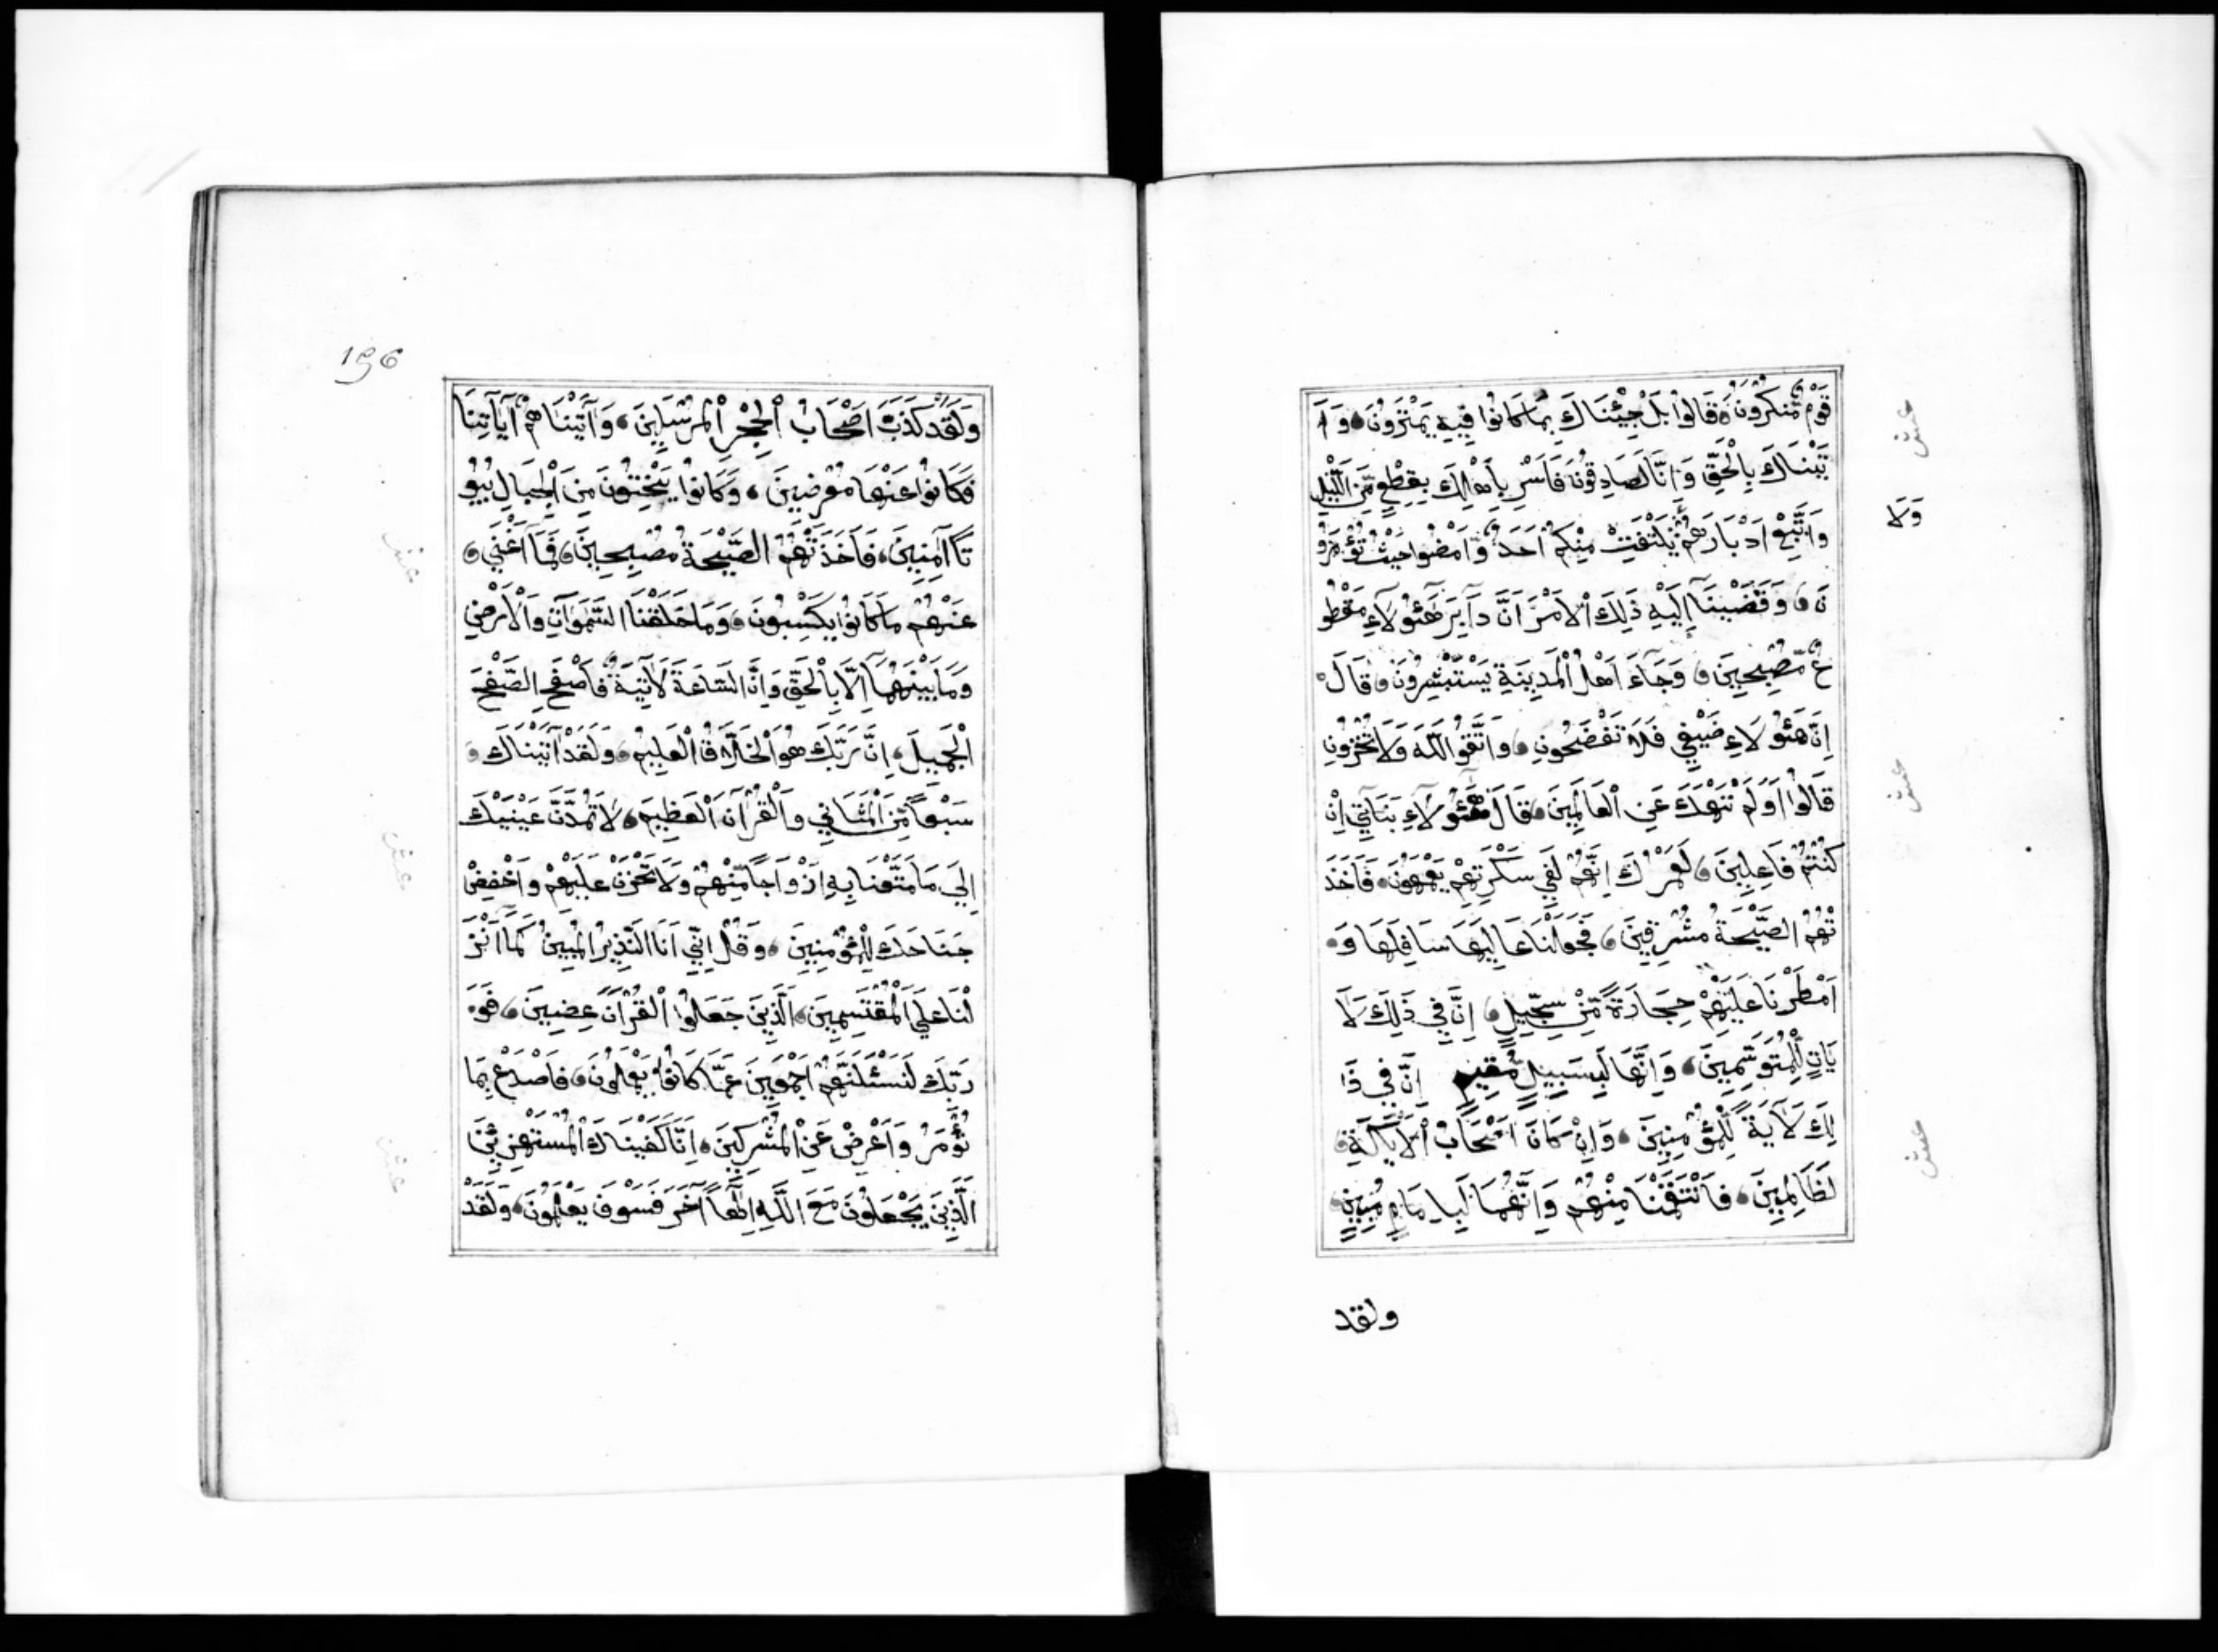 قَوْمٌ مُّنْكَرُونَ قَالُوا بَلْ جِئْنَاكَ بِمَا كَانُوا فِيهِ يَمْتَرُونَ وَأَ
تَيْنَاكَ بِالْحَقِّ وَإِنَّا لَصَادِقُونَ فَأَسْرِ بِأَهْلِكَ بِقِطْعٍ مِّنَ اللَّيْلِ
وَاتَّبِعْ أَدْبَارَهُمْ يَلْتَفِتْ مِنْكُمْ أَحَدٌ وَامْضُوا حَيْثُ تُؤْمَرُو
نَ وَقَضَيْنَا إِلَيْهِ ذَلِكَ الْأَمْرَ أَنَّ دَابِرَ هَؤُلَاءِ مَقْطُو
عٌ مُّصْبِحِينَ وَجَاءَ أَهْلُ الْمَدِينَةِ يَسْتَبْشِرُونَ قَالَ
إِنَّ هَؤُلَاءِ ضَيْفِي فَلَا تَفْضَحُونِ وَاتَّقُوا اللَّهَ وَلَا تُخْزُونِ
قَالُوا أَوَلَمْ نَنْهَكَ عَنِ الْعَالَمِينَ قَالَ هَؤُلَاءِ بَنَاتِي إِنْ
كُنْتُمْ فَاعِلِينَ لَعَمْرُكَ إِنَّهُمْ لَفِي سَكْرَتِهِمْ يَعْمَهُونَ فَأَخَذَ
تْهُمُ الصَّيْحَةُ مُشْرِقِينَ فَجَعَلْنَا عَالِيَهَا سَافِلَهَا وَ
أَمْطَرْنَا عَلَيْهِمْ حِجَارَةً مِّنْ سِجِّيلٍ إِنَّ فِي ذَلِكَ لَآ
يَاتٍ لِّلْمُتَوَسِّمِينَ وَإِنَّهَا لَبِسَبِيلٍ مُّقِيمٍ إِنَّ فِي ذَا
لِكَ لَآيَةً لِّلْمُؤْمِنِينَ وَإِنْ كَانَ أَصْحَابُ الْأَيْكَةِ
لَظَالِمِينَ فَانْتَقَمْنَا مِنْهُمْ وَإِنَّهُمَا لَبِإِمَامٍ مُّبِينٍ
ولقد
عشر
وَلَا
عشر
عشر
196
وَلَقَدْ كَذَّبَ أَصْحَابُ الْحِجْرِ الْمُرْسَلِينَ وَآتَيْنَاهُمْ آيَاتِنَا
فَكَانُوا عَنْهَا مُعْرِضِينَ وَكَانُوا يَنْحِتُونَ مِنَ الْجِبَالِ بُيُو
تًا آمِنِينَ فَأَخَذَتْهُمُ الصَّيْحَةُ مُصْبِحِينَ فَمَا أَغْنَى
عَنْهُمْ مَا كَانُوا يَكْسِبُونَ وَمَا خَلَقْنَا السَّمَوَاتِ وَالْأَرْضَ
وَمَا بَيْنَهُمَا إِلَّا بِالْحَقِّ وَإِنَّ السَّاعَةَ لَآتِيَةٌ فَاصْفَحِ الصَّفْحَ
الْجَمِيلَ إِنَّ رَبَّكَ هُوَ الْخَلَّاقُ الْعَلِيمُ وَلَقَدْ آتَيْنَاكَ
سَبْعًا مِّنَ الْمَثَانِي وَالْقُرْآنَ الْعَظِيمَ لَا تَمُدَّنَّ عَيْنَيْكَ
إِلَى مَا مَتَّعْنَا بِهِ أَزْوَاجًا مِّنْهُمْ وَلَا تَحْزَنْ عَلَيْهِمْ وَاخْفِضْ
جَنَاحَكَ لِلْمُؤْمِنِينَ وَقُلْ إِنِّي أَنَا النَّذِيرُ الْمُبِينُ كَمَا أَنْزَ
لْنَا عَلَى الْمُقْتَسِمِينَ الَّذِينَ جَعَلُوا الْقُرْآنَ عِضِينَ فَوَ
رَبِّكَ لَنَسْئَلَنَّهُمْ أَجْمَعِينَ عَمَّا كَانُوا يَعْمَلُونَ فَاصْدَعْ بِمَا
تُؤْمَرُ وَأَعْرِضْ عَنِ الْمُشْرِكِينَ إِنَّا كَفَيْنَاكَ الْمُسْتَهْزِئِينَ
الَّذِينَ يَجْعَلُونَ مَعَ اللَّهِ إِلَهًا آخَرَ فَسَوْفَ يَعْلَمُونَ وَلَقَدْ
عشر
عشر
عشر